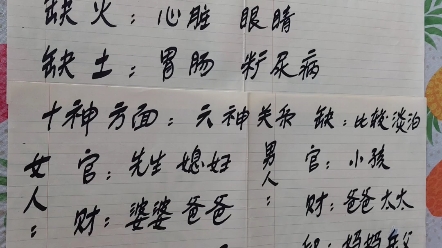 缺火：心脏 眼睛
缺土：胃肠 糖尿病
十神方面：六神关系 缺：比较淡泊
女人： 官：先生 媳妇
财：婆婆 爸爸
男人： 官：小孩
财：爸爸 太太